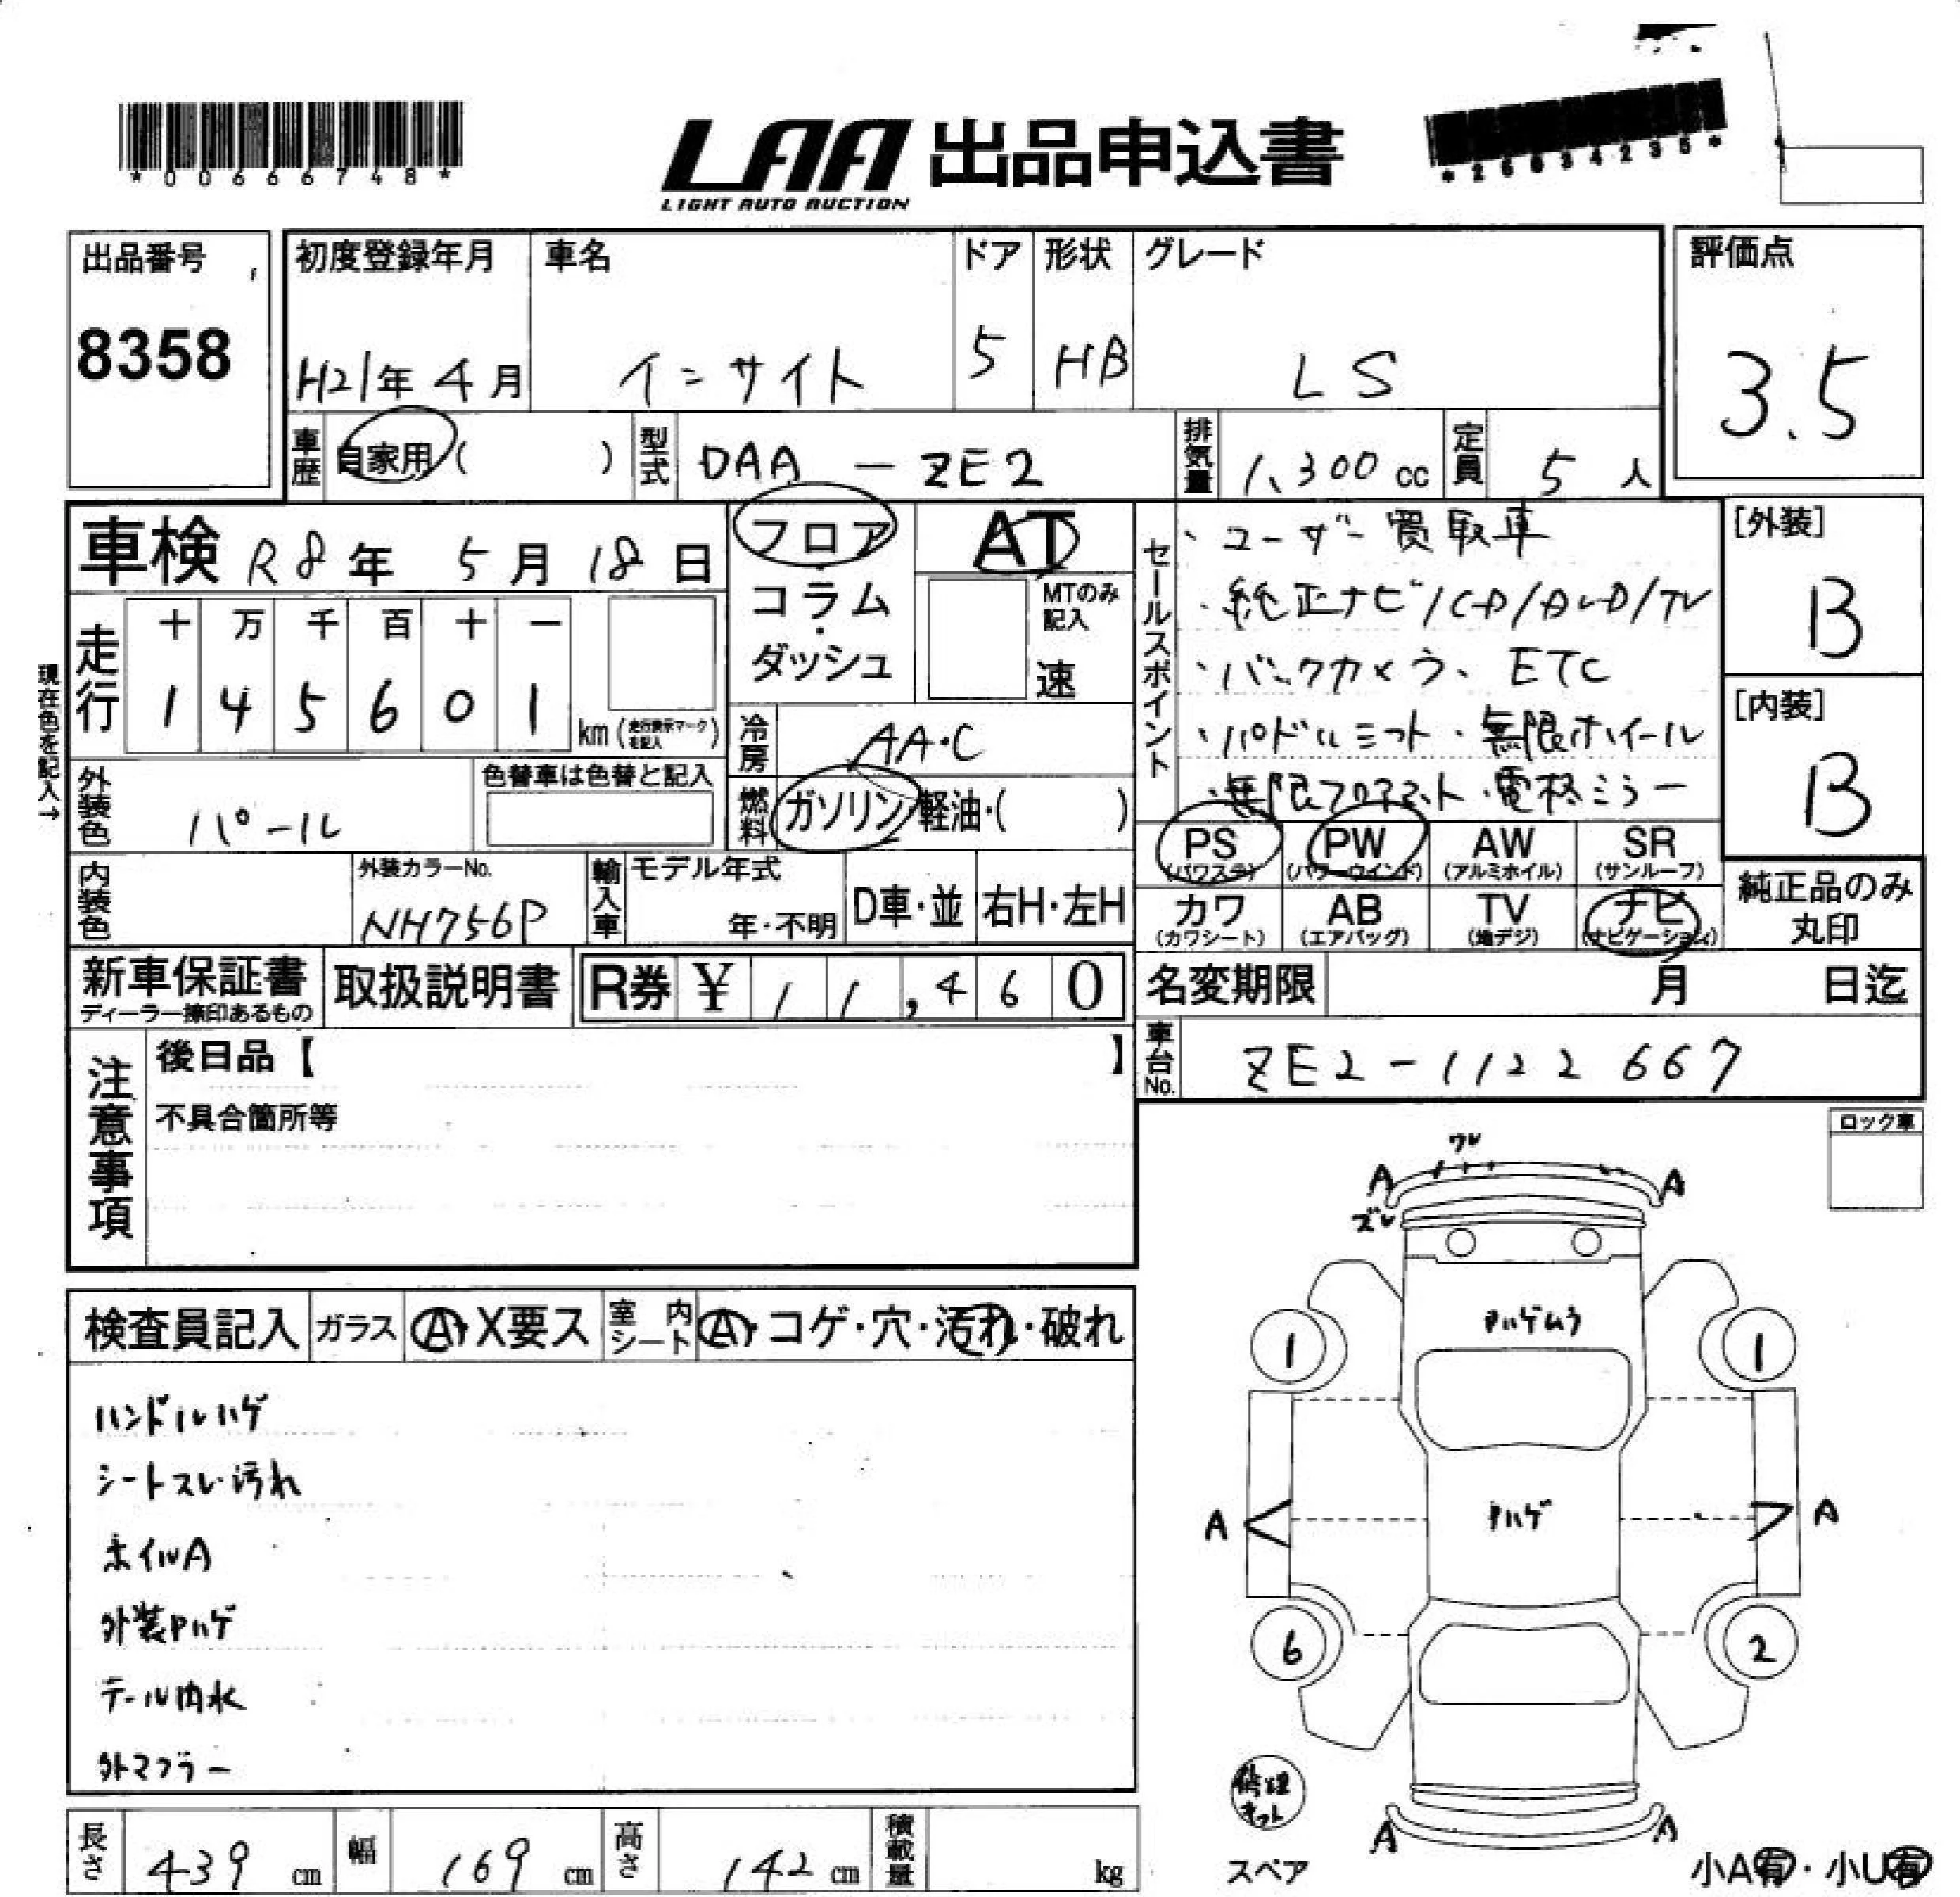 *00666748*
LAA 出品申込書
LIGHT AUTO AUCTION
*26034235*
出品番号
8358
初度登録年月
H21年 4月
車名
インサイト
ドア
5
形状
HB
グレード
LS
評価点
3.5
車歴
自家用 ( )
型式
DAA - ZE2
排気量
1,300 cc
定員
5 人
車検 R8年 5月 18日
フロア・コラム・ダッシュ
AT
MTのみ記入
速
セールスポイント
・ユーザー買取車
・純正ナビ/CD/DVD/TV
・バックカメラ、ETC
・パドルシフト・無限ホイール
・無限フロアマット・電格ミラー
[外装]
B
[内装]
B
現在色を記入→
走行
十 万 千 百 十 一
1 4 5 6 0 1 km (走行表示マークを記入)
冷房
AA・C
燃料
ガソリン・軽油・( )
外装色
パール
色替車は色替と記入
内装色
外装カラーNo.
NH756P
輸入車
モデル年式
年・不明
D車・並
右H・左H
PS (パワステ)
PW (パワーウインド)
AW (アルミホイル)
SR (サンルーフ)
カワ (カワシート)
AB (エアバッグ)
TV (地デジ)
ナビ (ナビゲーション)
純正品のみ丸印
新車保証書
ディーラー捺印あるもの
取扱説明書
R券 ¥ 11,460
名変期限 月 日迄
車台No.
ZE2-1122667
注意事項
後日品【 】
不具合箇所等
ロック車
検査員記入
ガラス
A・X要ス
室内シート
A・コゲ・穴・汚れ・破れ
ハンドルハゲ
シートスレ・汚れ
ホイルA
外装Pハゲ
テール内水
外マフラー
ワレ
A A
ズレ
Pハゲムラ
1 1
A Pハゲ A
6 2
修理キット
スペア
A A
小A有・小U有
長さ 439 cm
幅 169 cm
高さ 142 cm
積載量 kg